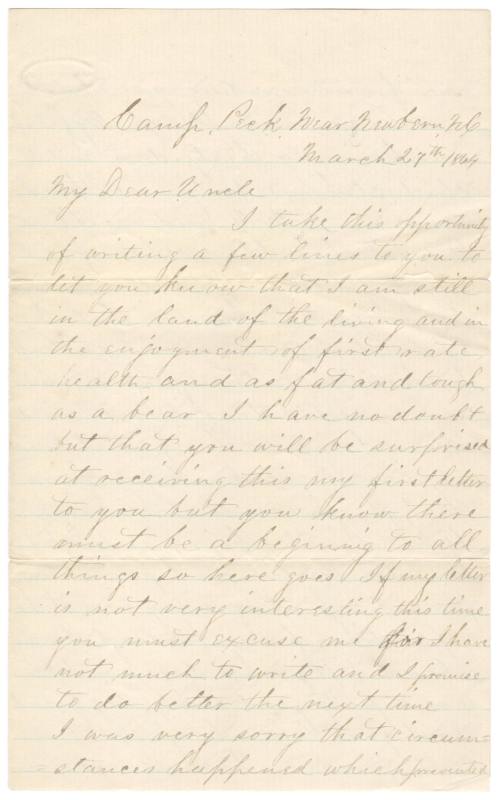 Camp Peck Near Newbern NC
March 27th 1864
My Dear Uncle
I take this opportunity
of writing a few lines to you to
let you know that I am still
in the land of the living and in
the enjoyment of first rate
health and as fat and tough
as a bear I have no doubt
but that you will be surprised
at receiving this my first letter
to you but you know there
must be a begining to all
things so here goes If my letter
is not very interesting this time
you must excuse me for I have
not much to write and I promise
to do better the next time
I was very sorry that circum=
=stances happened which prevented